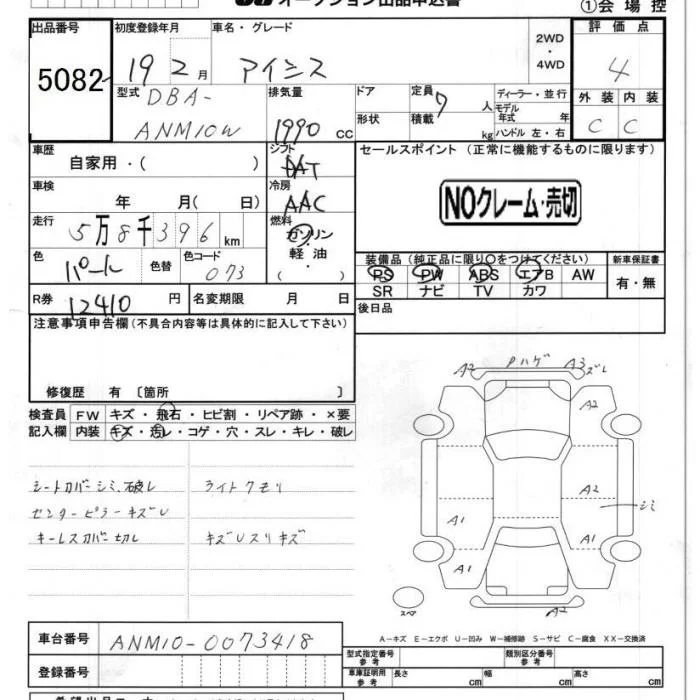 オークション出品申込書
①会場控
出品番号 初度登録年月 車名・グレード 2WD・4WD 評価点
5082 19 2月 アイシス 4
型式 DBA-ANM10W 排気量 1990 CC ドア 形状 定員 7人 積載 kg ディーラー・並行 モデル年式 年 ハンドル 左・右 外装 内装
C C
車歴 自家用・( ) シフト AT セールスポイント (正常に機能するものに限ります)
車検 年 月( 日) 冷房 AAC
NOクレーム・売切
走行 5万8千396km 燃料 ガソリン・軽油・
色 パール 色替 色コード 073
装備品 (純正品に限り○をつけてください) 新車保証書
PS PW ABS エアB AW 有・無
SR ナビ TV カワ
R券 12410円 名変期限 月 日
後日品
注意事項申告欄(不具合内容等は具体的に記入して下さい)
修復歴 有 〔箇所 〕
検査員記入欄 FW キズ・飛石・ヒビ割・リペア跡・×要
内装 キズ・汚レ・コゲ・穴・スレ・キレ・破レ
シートカバーシミ、破レ ライトクモリ
センターピラーキズU
キーレスカバー切レ キズUスリキズ
A2 Pハゲ A3ズレ
A2
A2
シミ
A1 A1
A1 A1
スペア A2
A-キズ E-エクボ U-凹み W-補修跡 S-サビ C-腐食 XX-交換済
車台番号 ANM10-0073418
型式指定番号 参考 類別区分番号 参考
登録番号
車庫証明用 参考 長さ cm 幅 cm 高さ cm